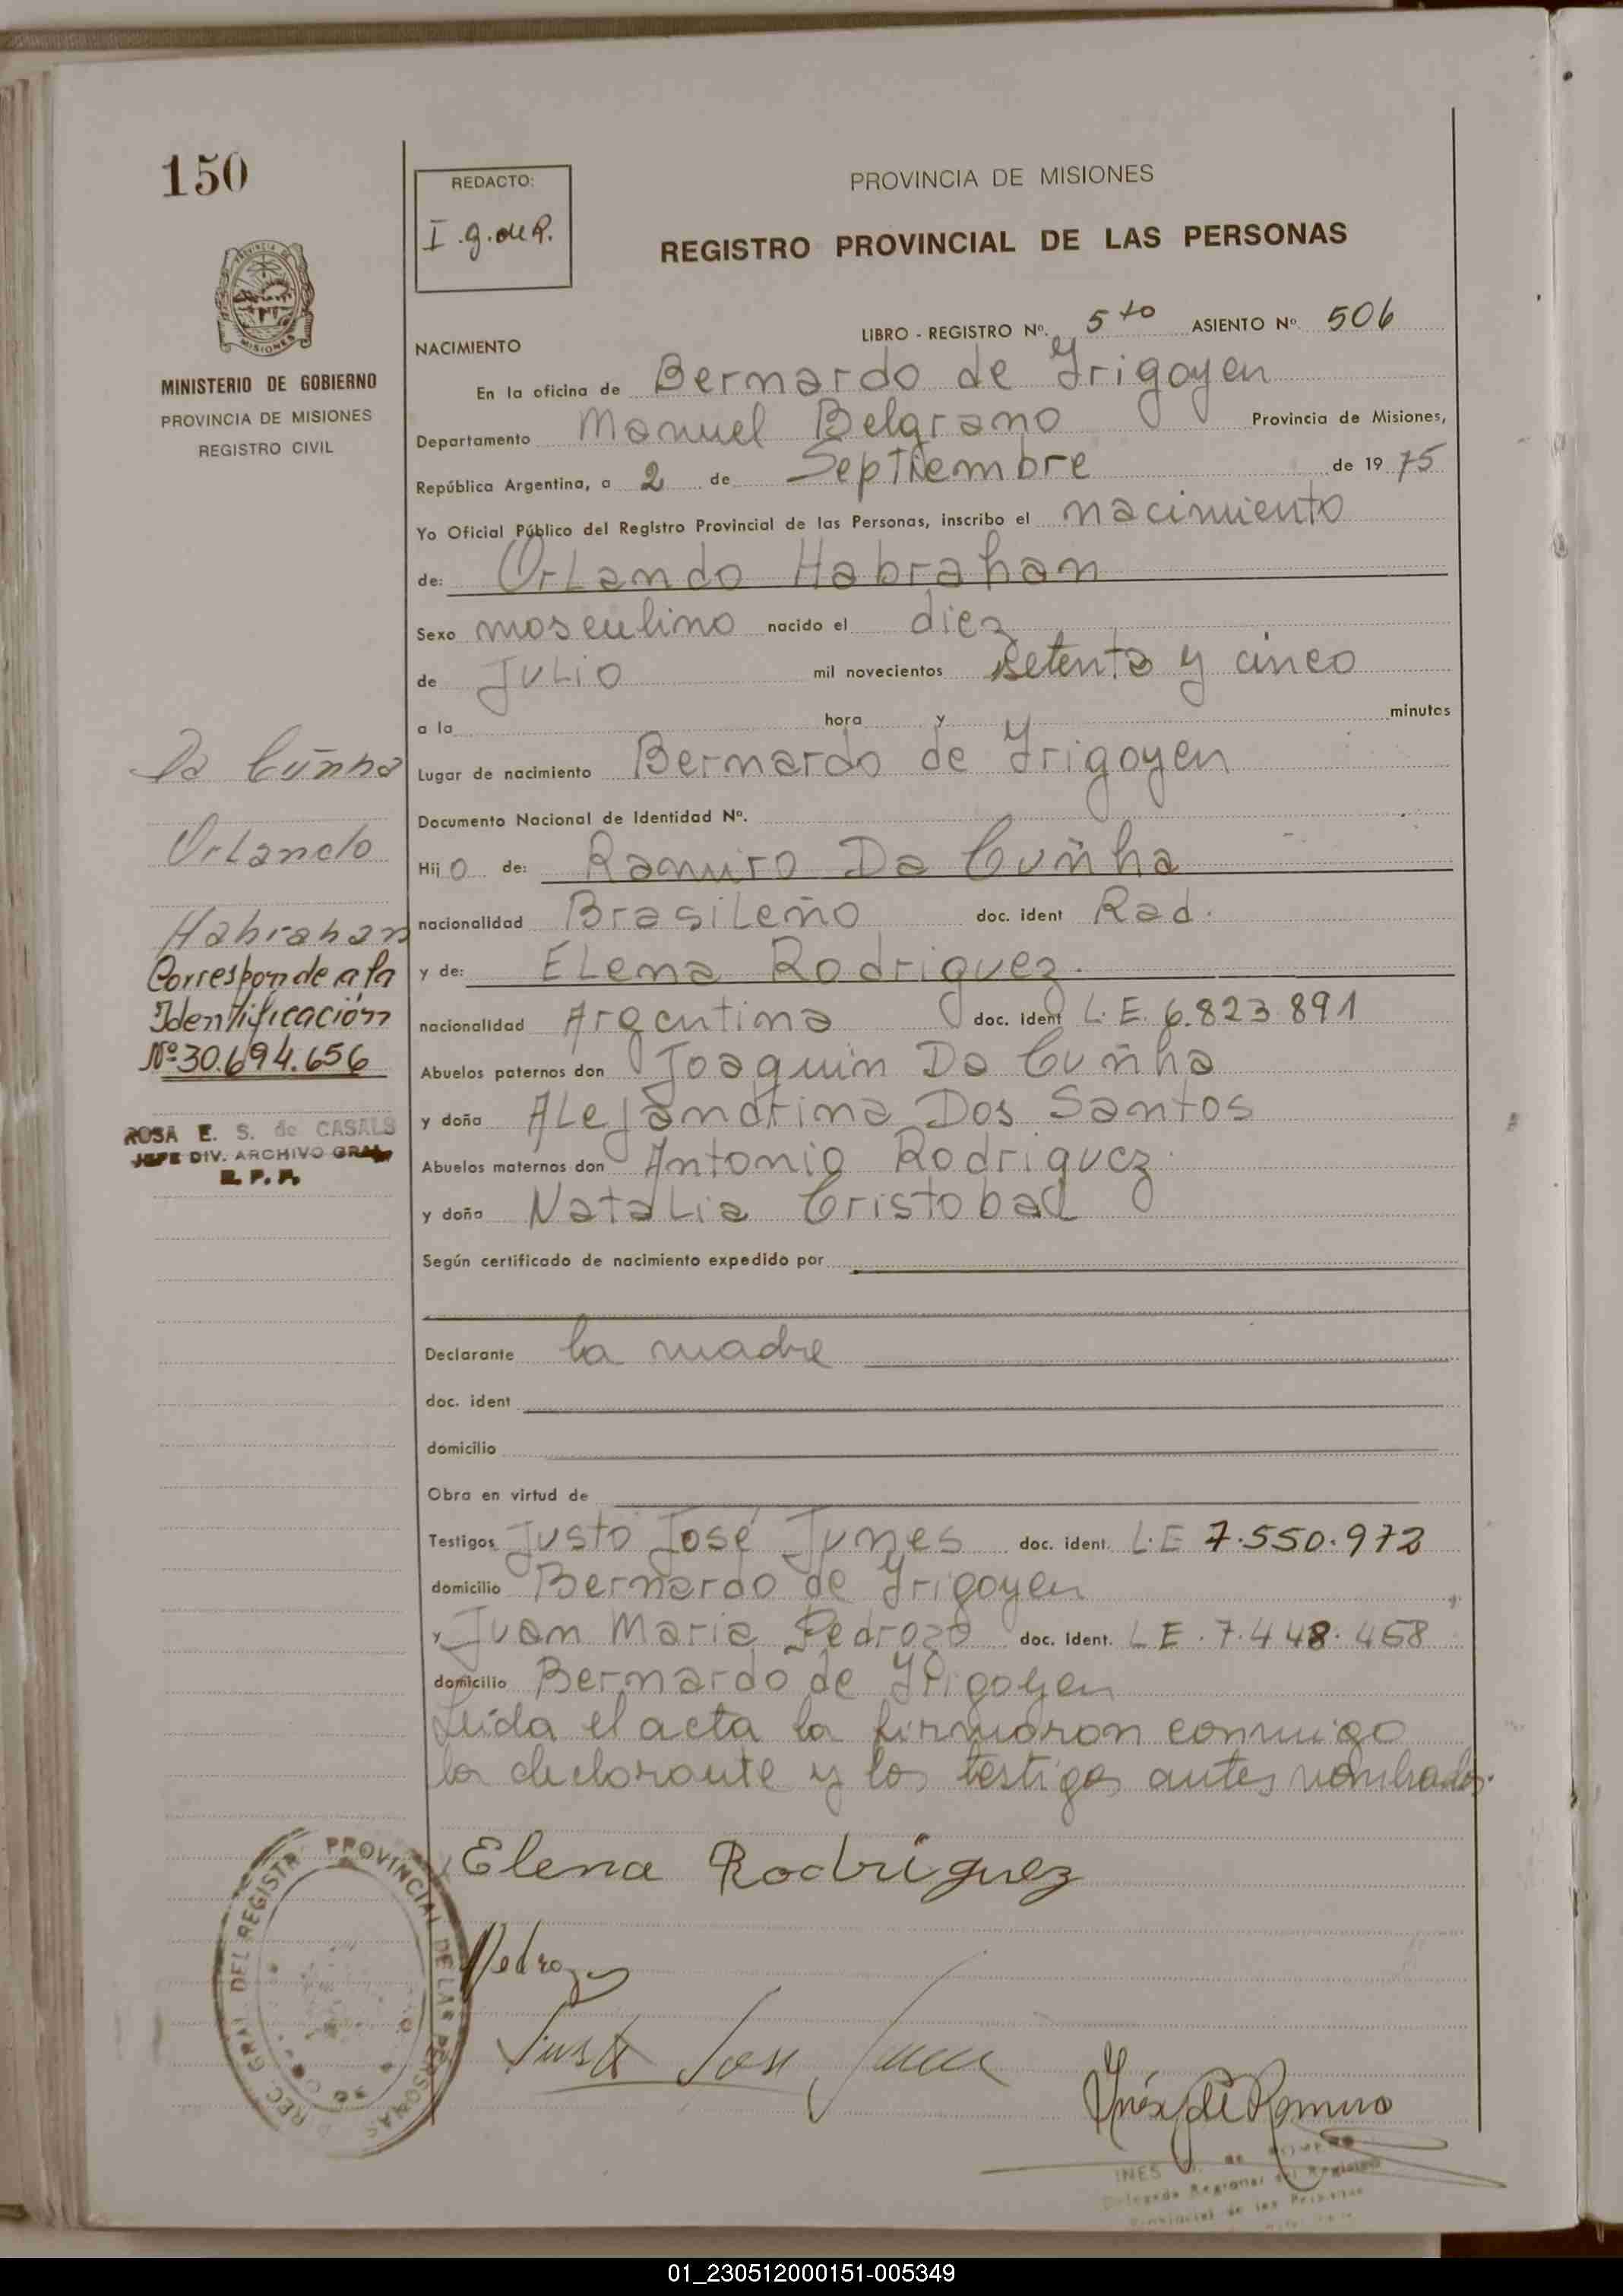 150
REDACTO:
I.g.de R.
PROVINCIA DE MISIONES
REGISTRO PROVINCIAL DE LAS PERSONAS
MISIONES
MINISTERIO DE GOBIERNO
PROVINCIA DE MISIONES
REGISTRO CIVIL
NACIMIENTO
LIBRO - REGISTRO Nº. 5to ASIENTO Nº 506
En la oficina de Bernardo de Yrigoyen
Departamento Manuel Belgrano Provincia de Misiones,
República Argentina, a 2 de Septiembre de 19 75
Yo Oficial Público del Registro Provincial de las Personas, inscribo el nacimiento
de: Orlando Habrahan
Sexo masculino nacido el diez
de Julio mil novecientos setenta y cinco
a la hora y minutos
Lugar de nacimiento Bernardo de Yrigoyen
Documento Nacional de Identidad Nº.
Hijo de: Ramiro Da Cuñha
nacionalidad Brasileño doc. ident Rad.
y de: Elena Rodriguez.
nacionalidad Argentina doc. ident L.E. 6.823.891
Abuelos paternos don Joaquin Da Cuñha
y doña Alejandrina Dos Santos
Abuelos maternos don Antonio Rodriguez
y doña Natalia Cristobal
Según certificado de nacimiento expedido por
Declarante la madre
doc. ident
domicilio
Obra en virtud de
Testigos Justo José Junes doc. ident. L.E 7.550.972
domicilio Bernardo de Yrigoyen
y Juan Maria Pedrozo doc. ident. L E. 7.448.458
domicilio Bernardo de Yrigoyen
Leida el acta la firmaron conmigo
la declarante y los testigos antes nombrados.
Da Cuñha
Orlando
Habrahan
Corresponde a la
Identificación
Nº 30.694.656
ROSA E. S. de CASALS
JEFE DIV. ARCHIVO GRAL.
R. P. P.
Elena Rodriguez
Pedrozo
Justo Jose
Inés de Romero
REC. GRAL DEL REGISTR PROVINCIAL DE LAS PERSONAS
INES de ROMERO
Delegada Regional del Registro
Provincial de las Personas
01_230512000151-005349